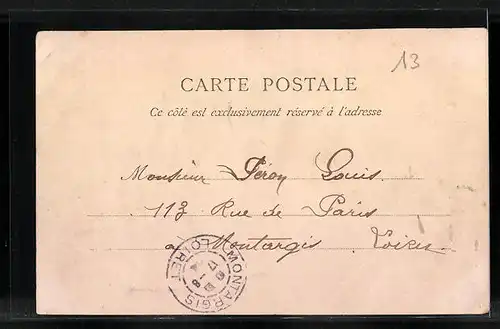 13
CARTE POSTALE
Ce côté est exclusivement réservé à l'adresse
Monsieur Péron Louis
113 Rue de Paris
à Montargis Loiret
MONTARGIS
LOIRET